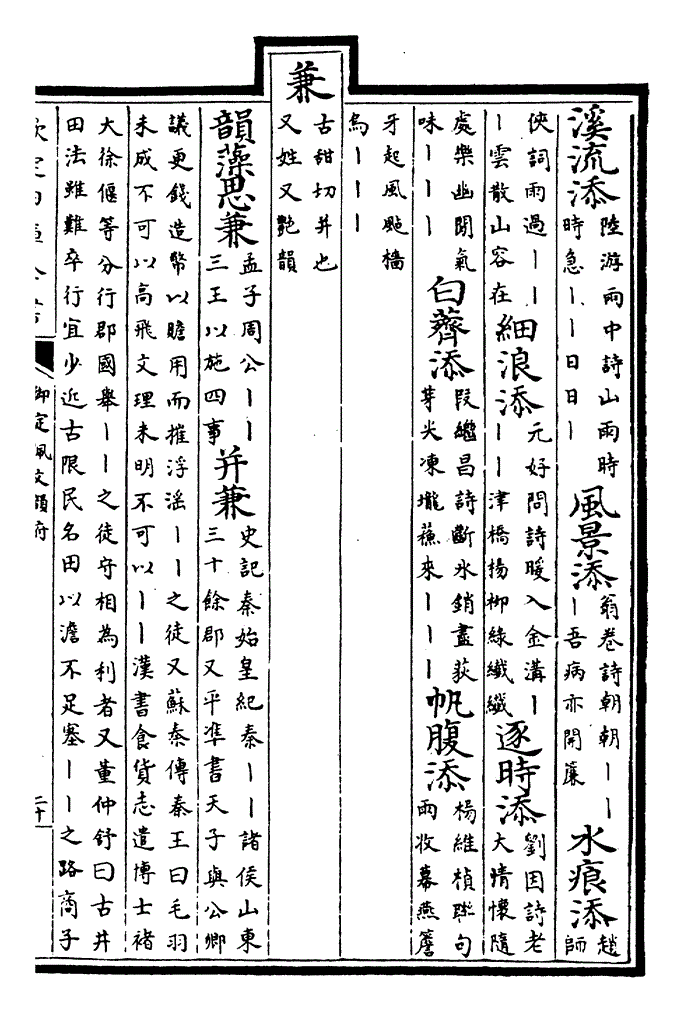 溪流添陸游雨中詩山雨時時急丨丨日日丨風景添翁卷詩朝朝丨丨丨吾病亦開簾水痕添趙師
俠詞雨過丨丨丨雲散山容在細浪添元好問詩暖入金溝丨丨丨津橋楊柳綠纖纖逐時添劉因詩老大情懷隨
處樂幽閒氣味丨丨丨白薺添段繼昌詩斷氷銷盡荻芽尖凍壠蘓來丨丨丨帆腹添楊維楨聯句雨收幕燕簷
牙起風颭檣烏丨丨丨
兼古甜切并也又姓又艷韻
韻藻思兼孟子周公丨丨三王以施四事并兼史記秦始皇紀秦丨丨諸侯山東三十餘郡又平準書天子與公卿
議更錢造幣以贍用而摧浮淫丨丨之徒又蘇秦傳秦王曰毛羽
未成不可以高飛文理未明不可以丨丨漢書食貨志遣博士褚
大徐偃等分行郡國舉丨丨之徒守相為利者又董仲舒曰古井
田法雖難卒行宜少近古限民名田以澹不足塞丨丨之路商子
欽定四庫全書
御定佩文韻府
二十